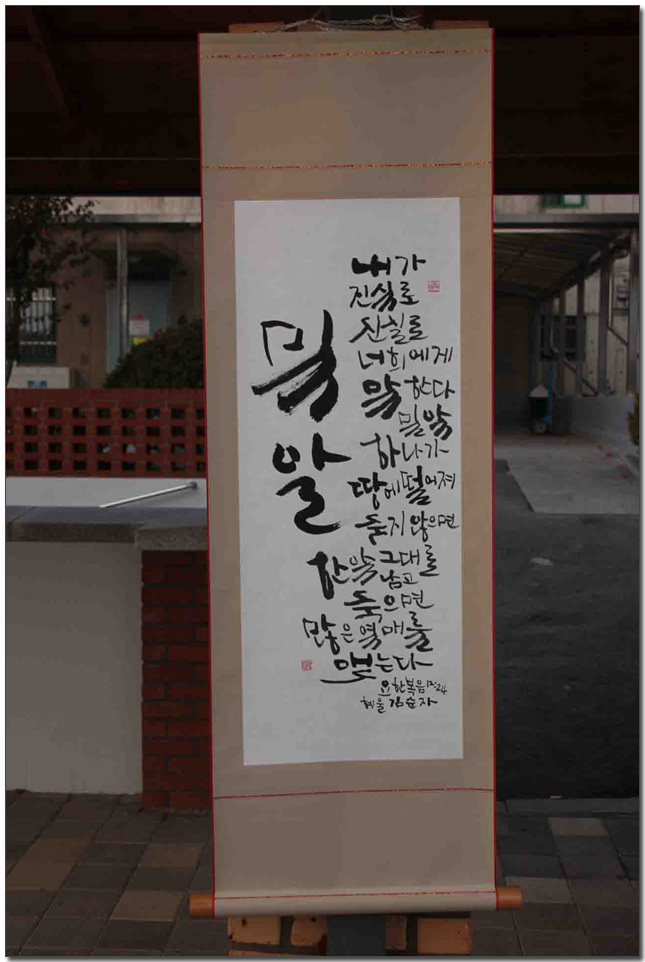 밀
알
내가
진실로
진실로
너희에게
말한다
밀알
하나가
땅에 떨어져
죽지 않으면
한 알 그대로
남고
죽으면
많은 열매를
맺는다
요한복음 12:24
김순자